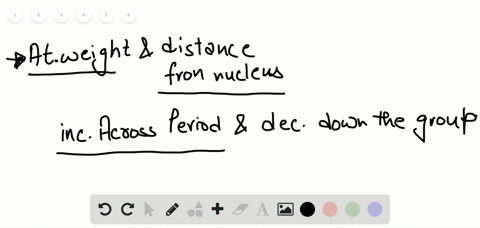 → At. weight & distance
from nucleus
inc. Across Period & dec. down the group